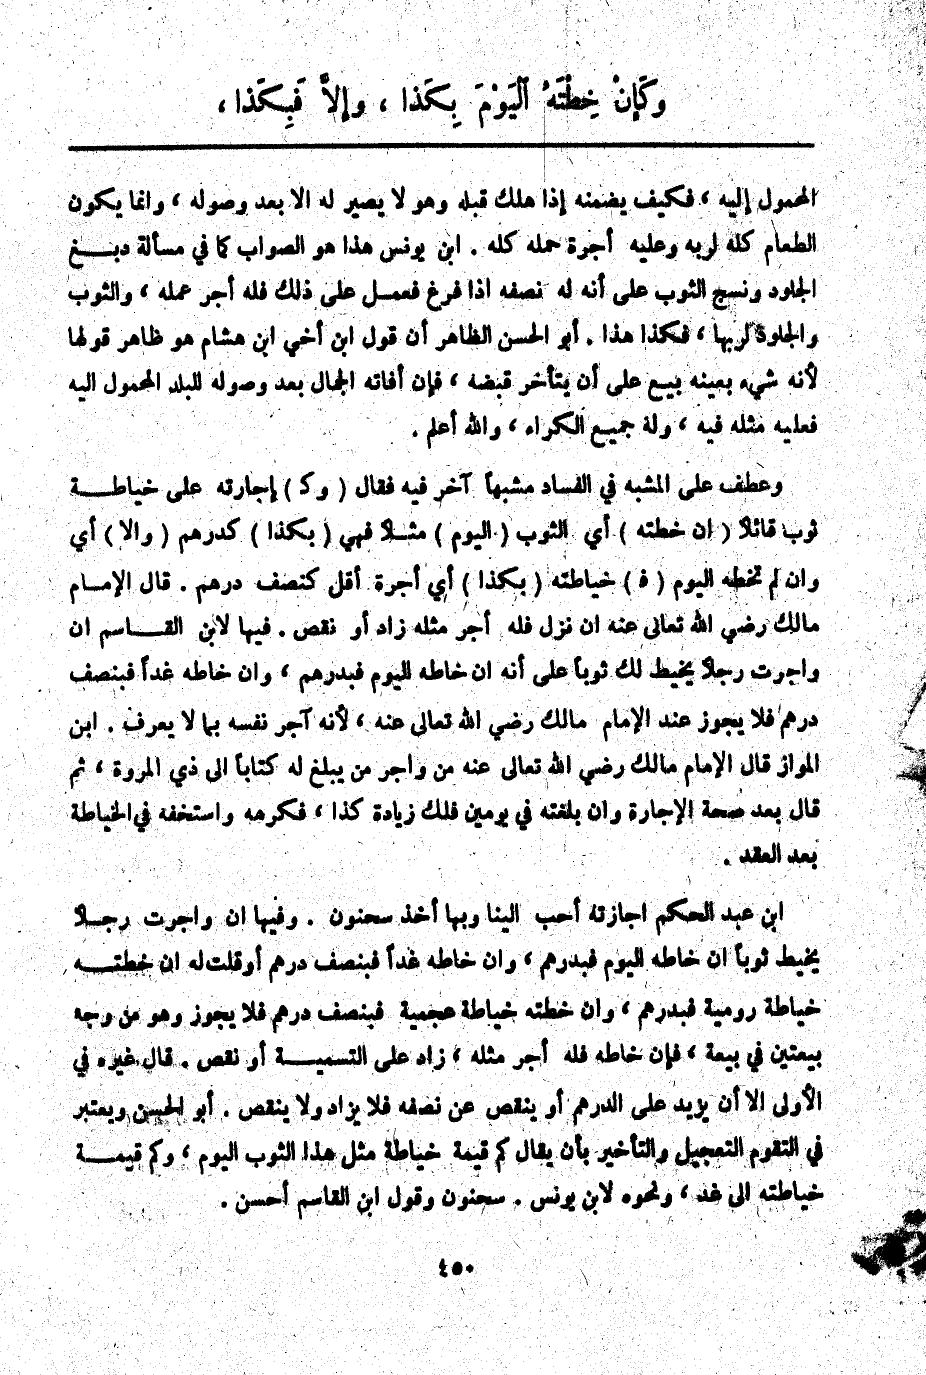 وَكَإِنْ خِطْتَهُ ٱلْيَوْمَ بِكَذا ، وإلاَّ فَبِكَذا ،
المحمول إليه ، فكيف يضمنه إذا هلك قبله وهو لا يصير له الا بعد وصوله ، وانما يكون
الطعام كله لربه وعليه أجرة حمله كله . ابن يونس هذا هو الصواب كما في مسألة دبــغ
الجلود ونسج الثوب على أنه له نصفه اذا فرغ فعمــل على ذلك فله أجر عمله ، والثوب
والجلود لربها ، فكذا هذا . أبو الحسن الظاهر أن قول ابن أخي ابن هشام هو ظاهر قولها
لأنه شيء بعينه بيــع على أن يتأخر قبضه ، فإن أفاته الجمال بعد وصوله للبلد المحمول اليه
فعليه مثله فيه ، وله جميــع الكراء ، والله أعلم .
وعطف على المشبه في الفساد مشبهاً آخر فيه فقال ( وكـ ) إجارته على خياطــــة
ثوب قائلاً ( ان خطته ) أي الثوب ( اليوم ) مثــلاً فهي ( بكذا ) كدرهم ( والا ) أي
وان لم تخطه اليوم ( فـ ) خياطته ( بكذا ) أي أجرة أقل كنصف درهم . قال الإمــام
مالك رضي الله تعالى عنه ان نزل فله أجر مثله زاد أو نقص . فيها لابن القــــاسم ان
واجرت رجلاً يخيط لك ثوباً على أنه ان خاطه اليوم فبدرهم ، وان خاطه غداً فبنصف
درهم فلا يجوز عند الإمام مالك رضي الله تعالى عنه ، لأنه آجر نفسه بما لا يعرف . ابن
المواز قال الإمام مالك رضي الله تعالى عنه من واجر من يبلغ له كتاباً الى ذي المروة ، ثم
قال بعد صحة الإجارة وان بلغته في يومين فلك زيادة كذا ، فكرهه واستخفه في الخياطة
بعد العقد .
ابن عبد الحكم اجازته أحب الينا وبها أخذ سحنون . وفيها ان واجرت رجــلاً
يخيط ثوباً ان خاطه اليوم فبدرهم ، وان خاطه غداً فبنصف درهم أو قلت له ان خطتــــه
خياطة رومية فبدرهم ، وان خطته خياطة عجمية فبنصف درهم فلا يجوز وهو من وجه
بيعتين في بيعة ، فإن خاطه فله أجر مثله ، زاد على التسميــــة أو نقص . قال غيره في
الأولى الا أن يزيد على الدرهم أو ينقص عن نصفه فلا يزاد ولا ينقص . أبو الحسن ويعتبر
في التقوم التعجيل والتأخير بأن يقال كم قيمة خياطة مثل هذا الثوب اليوم ، وكم قيمــــة
خياطته الى غد ، ونحوه لابن يونس . سحنون وقول ابن القاسم أحسن .
٤٥٠